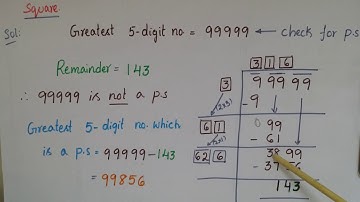 Square
Sol: Greatest 5-digit no. = 99999 ← check for p.s
Remainder = 143
∴ 99999 is not a p.s
Greatest 5-digit no. which
is a p.s = 99999 - 143
= 99856
3 1 6
3 9 99 99
- 9
(2×3)
6 1 0 99
- 61
62 6 38 99
- 37 56
143